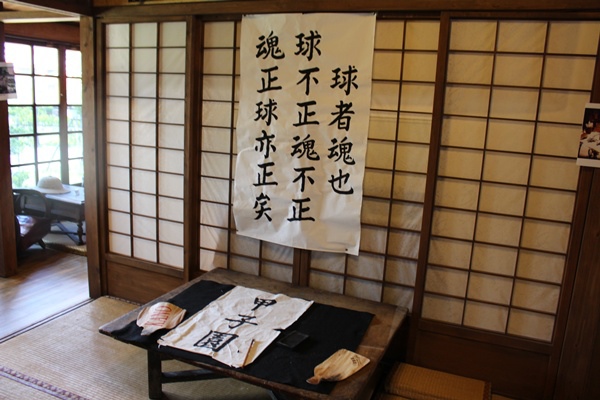 球者魂也
球不正魂不正
魂正球亦正矣
甲子園